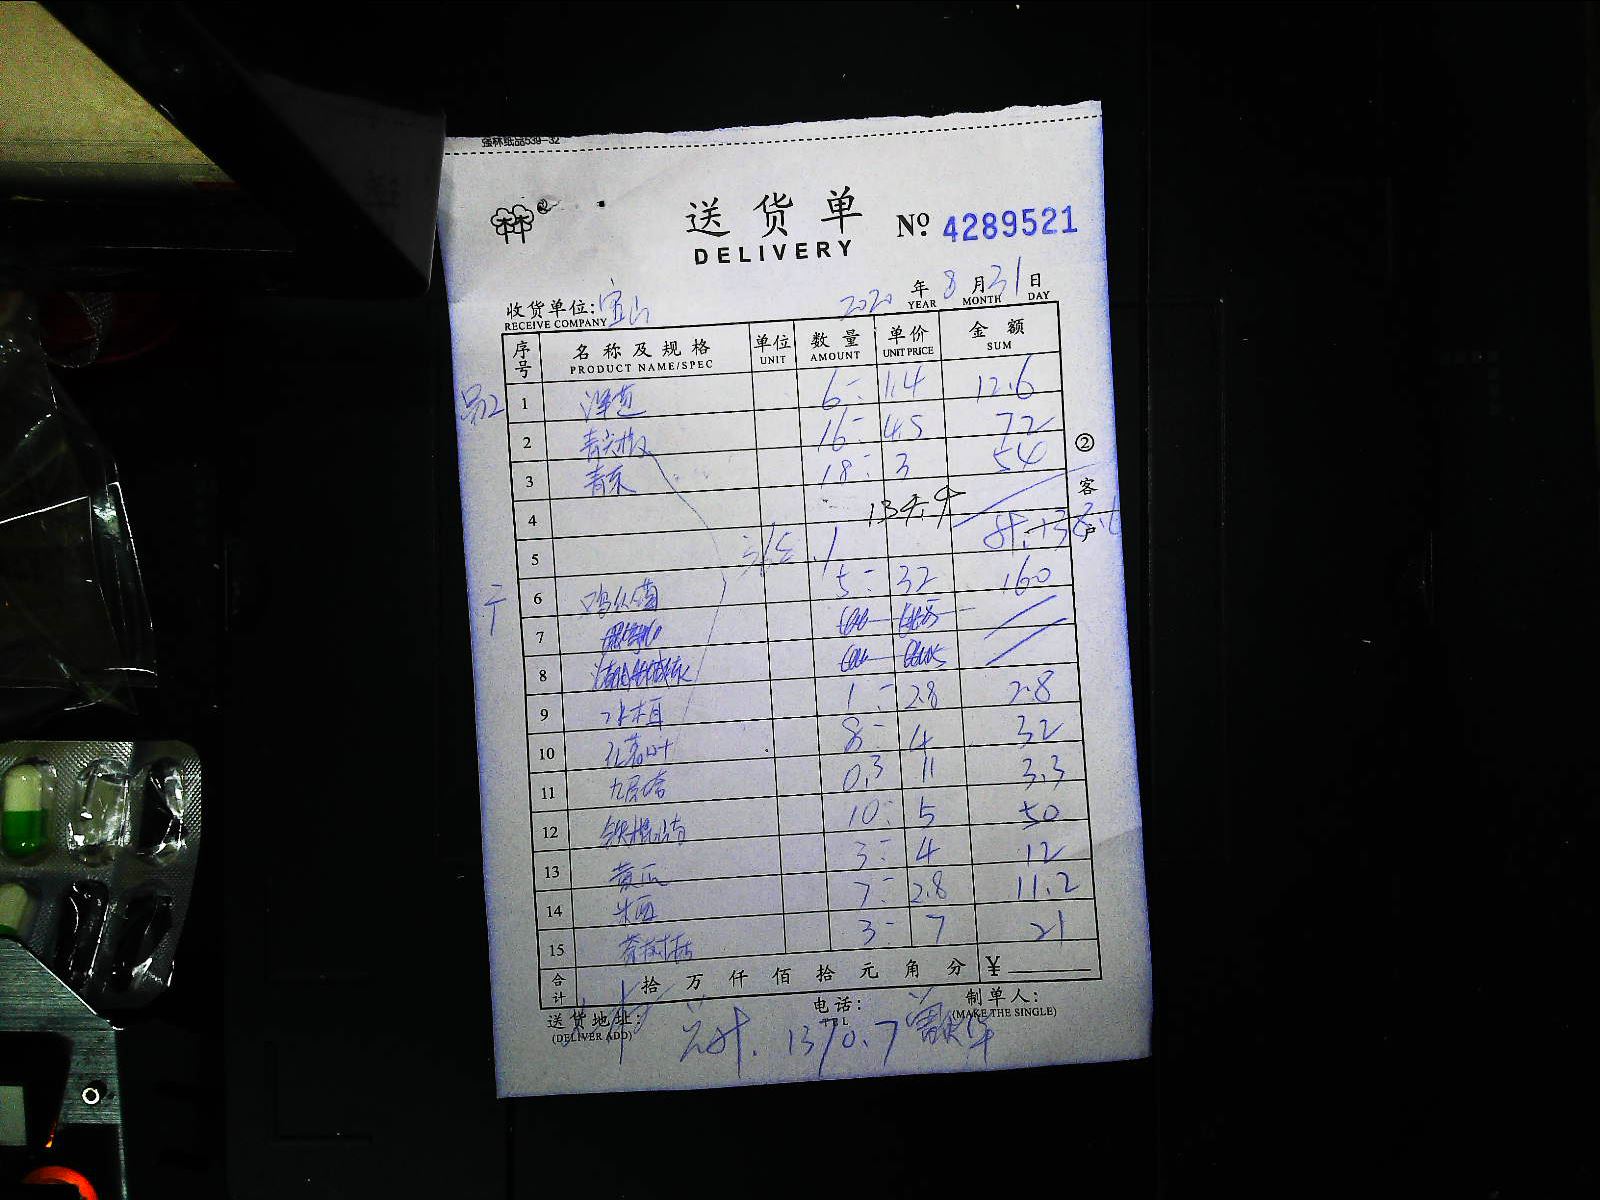 强林纸品539-32
送货单 Nº 4289521
DELIVERY
收货单位: 宝山 2020 年 8 月 31 日
RECEIVE COMPANY YEAR MONTH DAY
序号 名称及规格 单位 数量 单价 金额
PRODUCT NAME/SPEC UNIT AMOUNT UNIT PRICE SUM
1 洋葱 6 1.4 12.6
2 青尖椒 16 4.5 72
3 青东 18 3 54
4 134.4
5
6 鸡纵菌 5 32 160
7
8
9 水木耳 1 2.8 2.8
10 8 4 32
11 九层塔 0.3 11 3.3
12 铁棍山药 10 5 50
13 黄瓜 3 4 12
14 7 2.8 11.2
15 3 7 21
② 客户
合计 拾 万 仟 佰 拾 元 角 分 ¥
送货地址: 电话: 制单人:
(DELIVER ADD) TEL (MAKE THE SINGLE)
1370.7